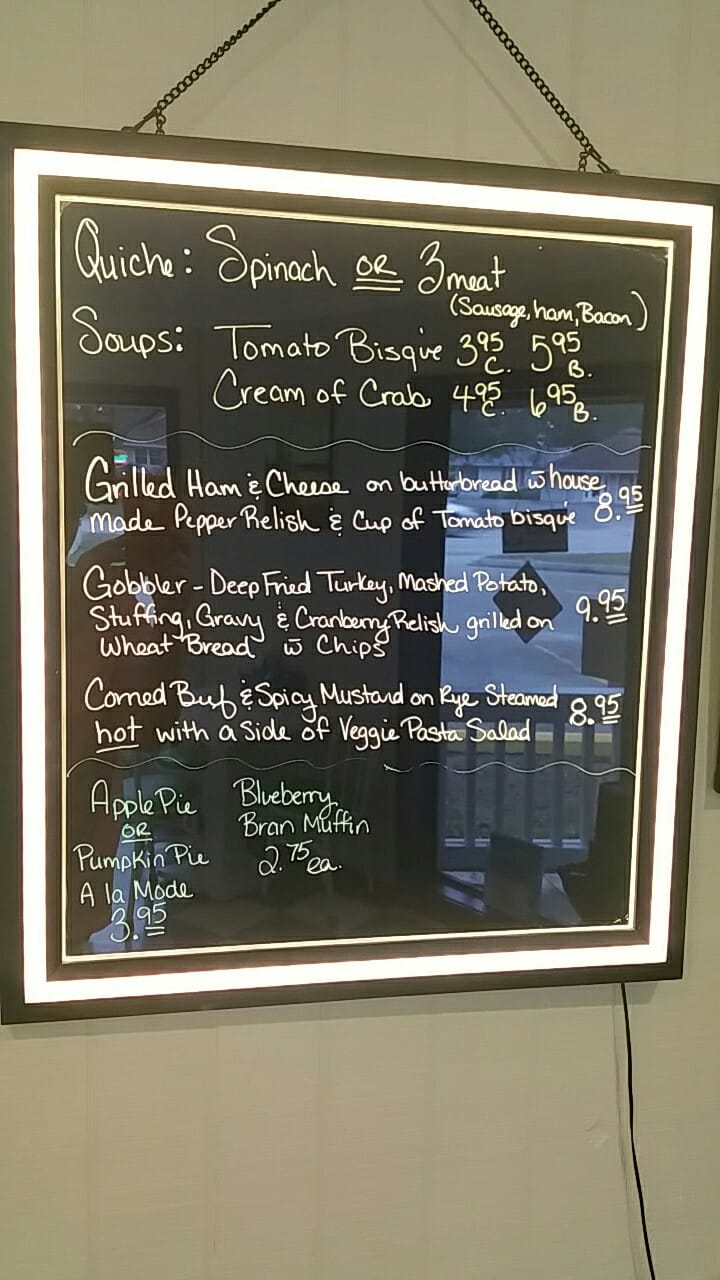 Quiche: Spinach OR 3 meat
(Sausage, ham, Bacon)
Soups: Tomato Bisque 3.95 C. 5.95 B.
Cream of Crab 4.95 C. 6.95 B.
Grilled Ham & Cheese on butterbread w̄ house
made Pepper Relish & Cup of Tomato bisque 8.95
Gobbler - Deep Fried Turkey, Mashed Potato,
Stuffing, Gravy & Cranberry Relish grilled on 9.95
Wheat Bread w̄ Chips
Corned Beef & Spicy Mustard on Rye Steamed 8.95
hot with a side of Veggie Pasta Salad
Apple Pie
OR
Pumpkin Pie
A la Mode
3.95
Blueberry
Bran Muffin
2.75 ea.